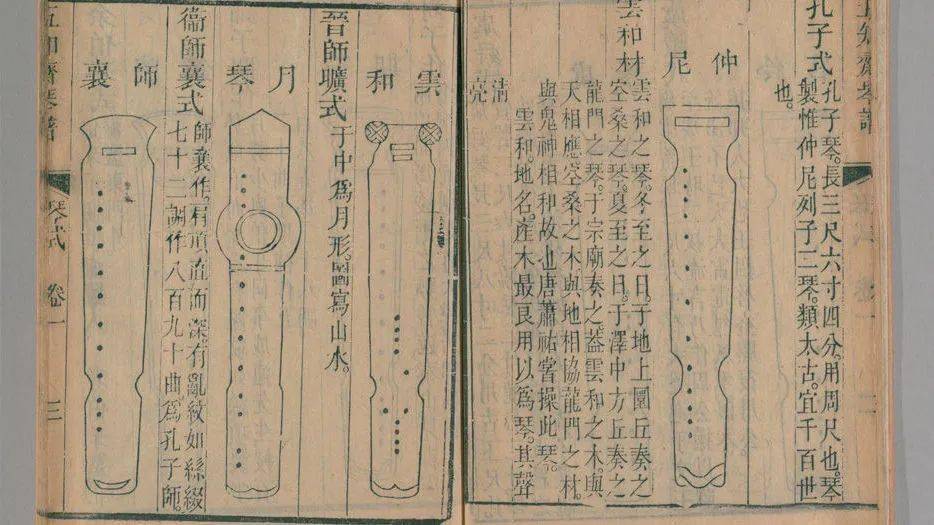 孔子式
孔子琴。長三尺六寸四分。用周尺也。琴
製惟仲尼列子二琴。類太古。宜千百世
也。
仲尼
雲和材
雲和之琴。冬至之日。于地上圜丘奏之
空桑之琴。夏至之日。于澤中方丘奏之
龍門之琴。于宗廟奏之。蓋雲和之木。與
天相應。空桑之木。與地相協。龍門之材。
與鬼神相和。故也。唐蕭祐嘗操此琴。
雲和。地名。產木最良。用以爲琴。其聲
清亮
雲和
晉師壙式
于中爲月形。圖寫山水。
月琴
衞師襄式
師襄作。肩頂直而深。有亂紋如絲綴
七十二調。作八百九十曲。爲孔子師。
師襄
五知齋琴譜
琴式 卷一
三